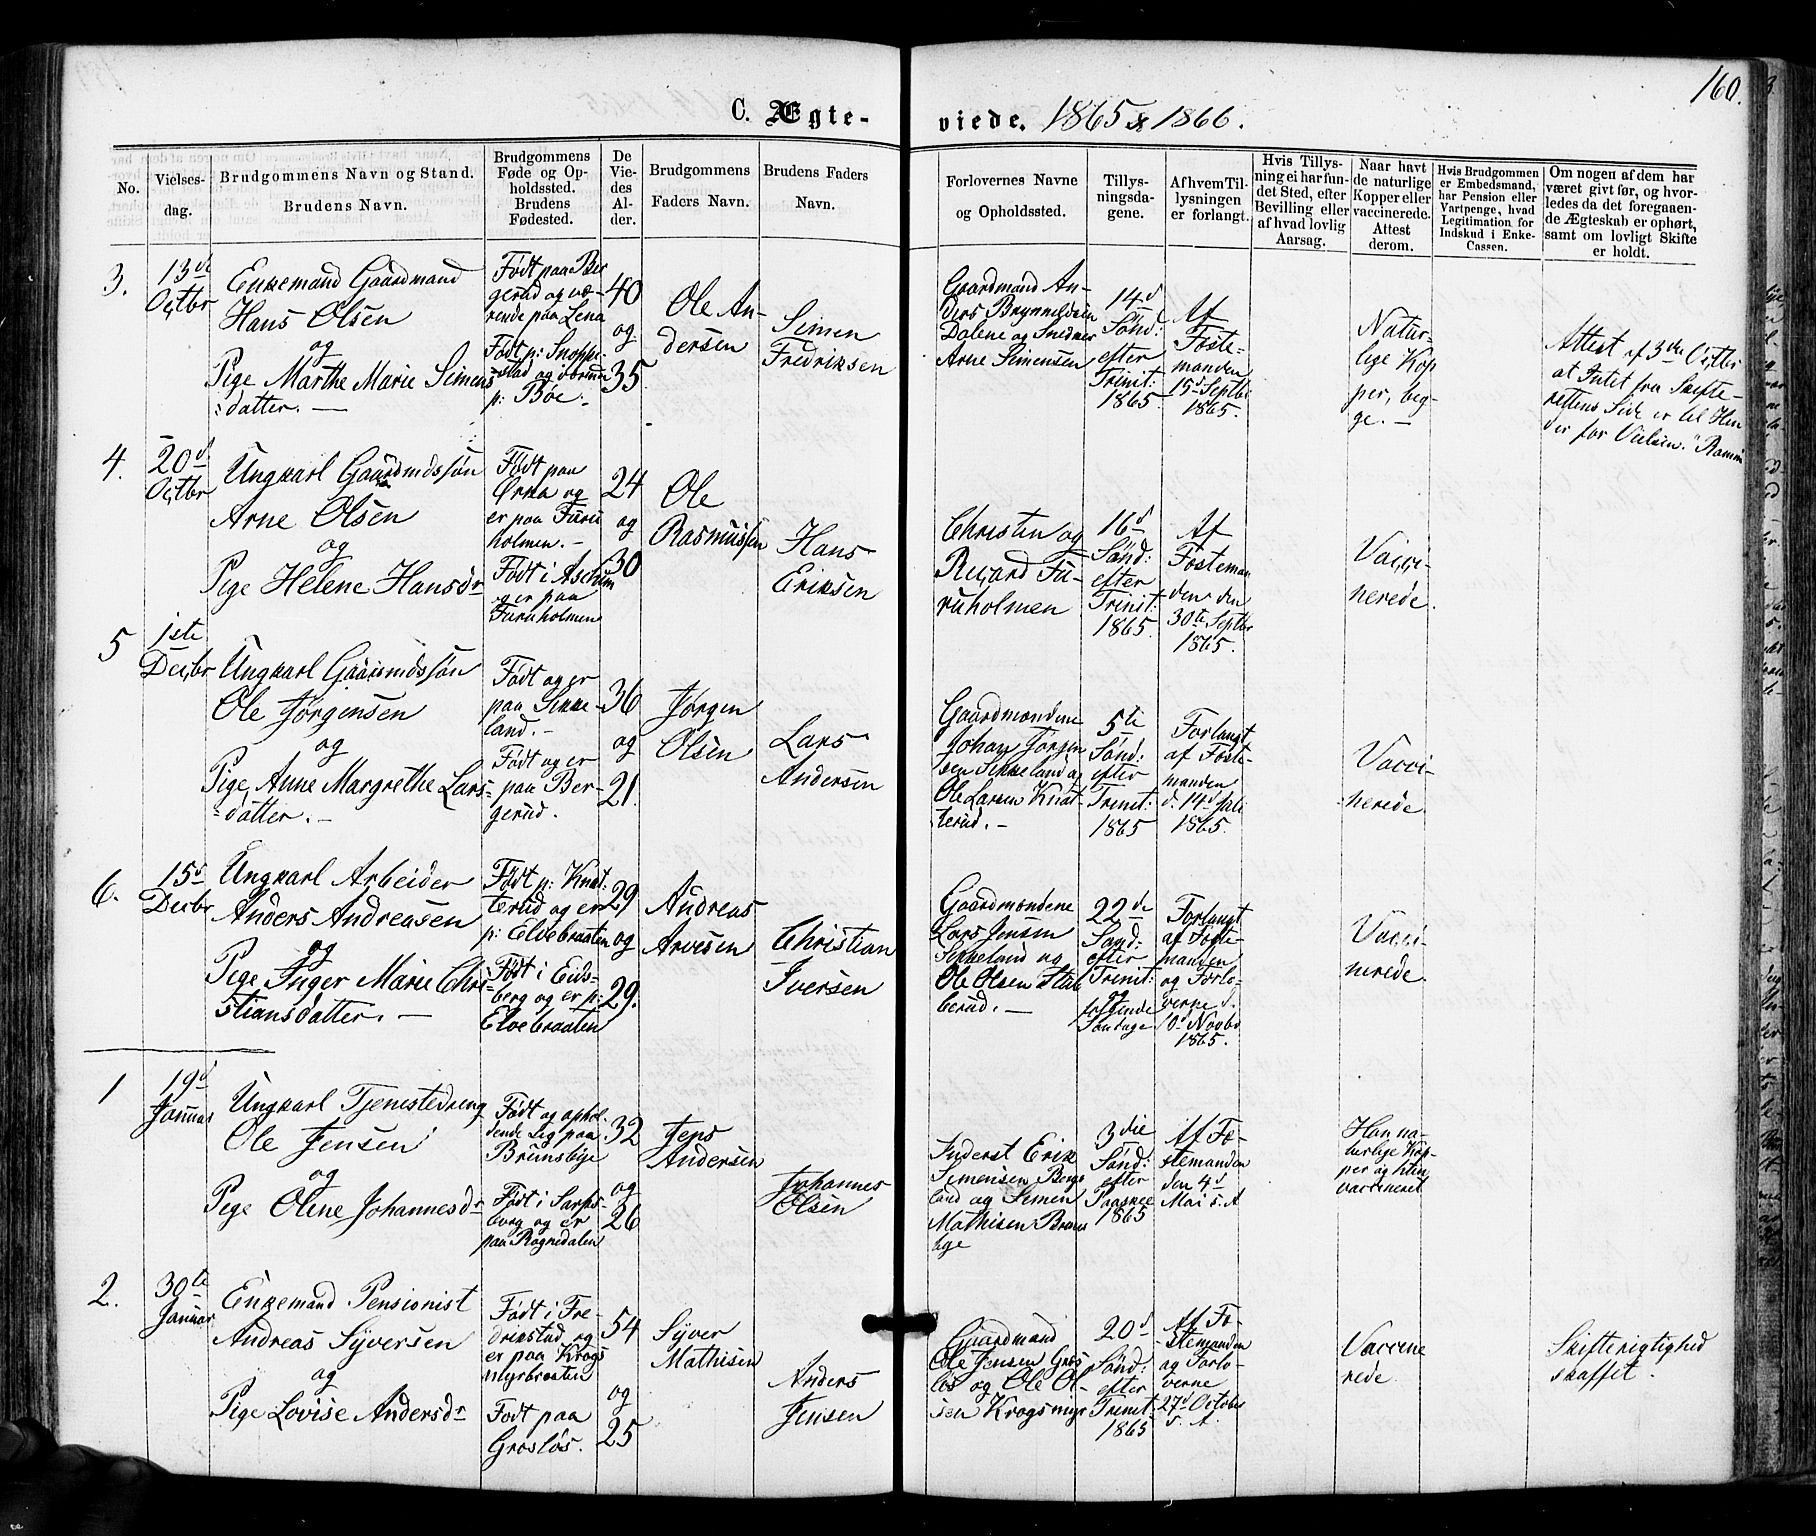 160.
C. Ægte-
viede. 1865 & 1866.
No.
Vielses-
dag.
Brudgommens Navn og Stand.
Brudens Navn.
Brudgommens
Føde og Op-
holdssted.
Brudens
Fødested.
De
Vie-
des
Al-
der.
Brudgommens
Faders Navn.
Brudens Faders
Navn.
Forlovernes Navne
og Opholdssted.
Tillys-
ningsda-
gene.
Af hvem Til-
lysningen
er forlangt.
Hvis Tillys-
ning ei har fun-
det Sted, efter
Bevilling eller
af hvad lovlig
Aarsag.
Naar havt
de naturlige
Kopper eller
vaccinerede.
Attest
derom.
Hvis Brudgommen
er Embedsmand,
har Pension eller
Vartpenge, hvad
Legitimation for
Indskud i Enke-
Cassen.
Om nogen af dem har
været givt før, og hvor-
ledes da det foregaaen-
de Ægteskab er ophørt,
samt om lovligt Skifte
er holdt.
3.
13d
Octbr
Enkemand Gaardmand
Hans Olsen
og
Pige Marthe Marie Simens
datter. —
Født paa Ber
gerud og væ-
rende paa Lena
Født p: Snoppe-
stad og
p: Bøe.
40
og
35.
Ole An-
dersen
Simen
Fredriksen
Gaardmand An-
ders Brynnildsen
Dalene og
Arne Simensen
14d
Sönd:
efter
Trinit:
1865.
Af
Foste-
manden
15d Septbr
1865.
Natur-
lige Kop
per, beg-
ge. —
Attest af 3die Octbr
at Intet fra Skifte-
rettens Side er til Hin
der for Vielsen.
4.
20d
Octbr
Ungkarl Gaardmdssøn
Arne Olsen
og
Pige Helene Hansdr
Født paa
Ørka og
er paa Furu
holmen. —
Født i Askim
og er paa
Furuholmen
24
og
30
Ole
Rasmussen
Hans
Eriksen
Christen og
Richard Fu-
ruholmen
16d
Sönd:
efter
Trinit:
1865.
Af
Fosteman
den den
30te Septbr
1865.
Vacci-
nerede.
5
1ste
Decbr
Ungkarl Gaardmdssøn
Ole Jørgensen
og
Pige, Anne Margrethe Lars-
datter. —
Født og er
paa Sikke-
land. —
Født og er
paa Ber-
gerud.
36
og
21.
Jørgen
Olsen
Lars
Andersen
Gaardmændene
Johan Jørgen
sen Sikkeland og
Ole Larsen Knat-
terud. —
5te
Sönd:
efter
Trinit:
1865
Forlangt
af Foste-
manden
d. 14d Juli
1865.
Vacci-
nerede.
6.
15d
Decbr
Ungkarl Arbeider
Anders Andreasen
og
Pige Inger Marie Chri-
stiansdatter. —
Født p: Knat-
terud og er
p: Elvebraaten
Født i Eids-
berg og er p:
Elvebraaten
29
og
29.
Andreas
Arvesen
Christian
Iversen
Gaardmændene
Lars Jensen
Sikkeland og
Ole Olsen Stab
berud. —
22de
Sönd:
efter
Trinit:
og
følgende
Søndage
Forlangt
af Foste-
manden
og Forlo-
verne d.
10d Novbr
1865.
Vacci-
nerede.
1
19d
Januar
Ungkarl Tjenestedreng
Ole Jensen
og
Pige Oline Johannesdr
Født og ophol-
dende sig paa
Brunsbye
Født i Sarps-
borg og er
paa Rognedalen
32
og
26
Jens
Andersen
Johannes
Olsen
Inderst Erik
Simensen Bergs
land og Simen
Mathisen Bruns
bye
3die
Sönd:
efter
Paaske
1865
Af Fo-
stemanden
den 4d
Mai s. A
Han na-
turlige Kop-
per og hun
vaccineret
2.
30te
Januar
Enkemand Pensionist
Andreas Syversen
og
Pige Lovise Andersdr
Født i Fre-
drikstad og
er paa Krogs
myrbraaten
Født paa
Grosløs.
54
og
25
Syver
Mathisen
Anders
Jensen
Gaardmand
Ole Jensen Gros
løs og Ole Ol-
sen Krogsmyr
20d
Sönd:
efter
Trinit:
1865
Af Fo-
stemanden
og Forlo-
verne
27d October
s. A.
Vaccine
rede.
Skifterigtighed
skaffet.